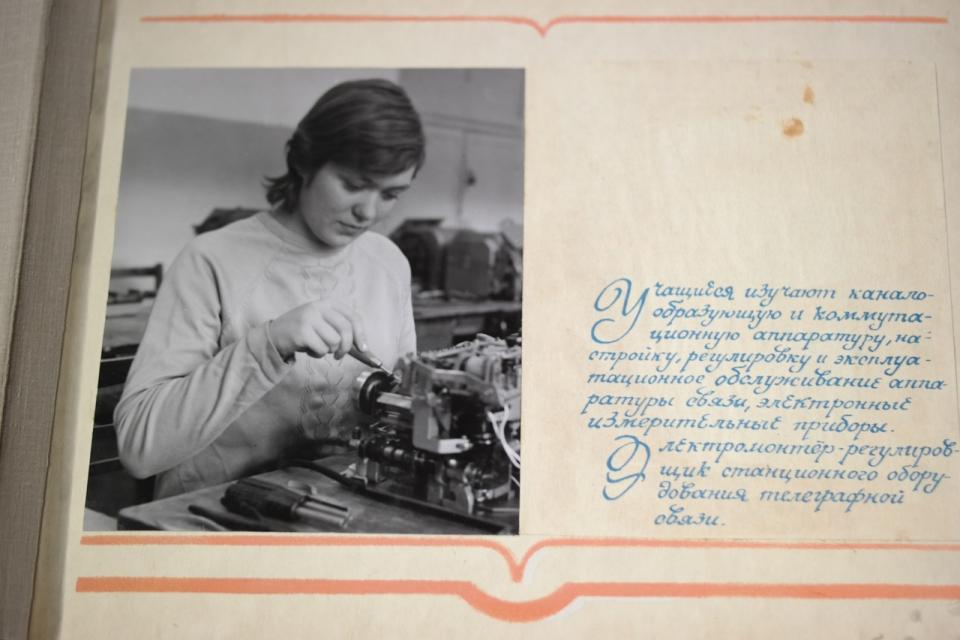 Учащиеся изучают канало-
образующую и коммута-
ционную аппаратуру, на-
стройку, регулировку и эксплуа-
тационное обслуживание аппа-
ратуры связи, электронные
измерительные приборы.
Электромонтёр-регулиров-
щик станционного обору-
дования телеграфной
связи.